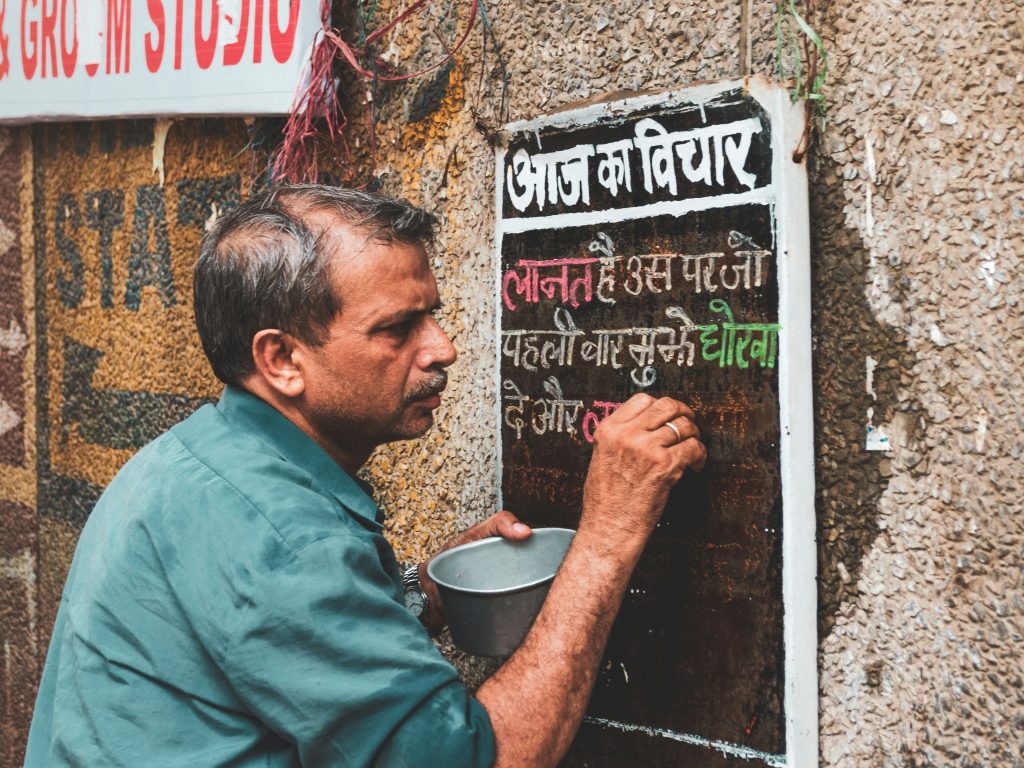 & GROOM STUDIO
आज का विचार
लानत है उस पर जो
पहली बार मुझे धोखा
दे और